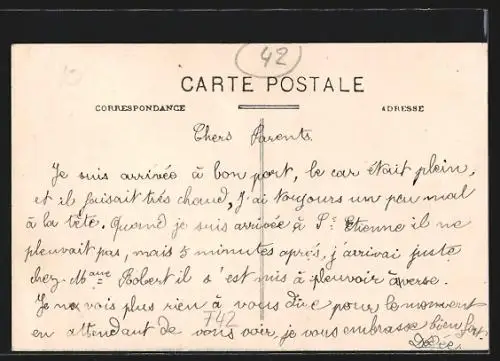 42
CARTE POSTALE
CORRESPONDANCE ADRESSE
Chers Parents.
Je suis arrivée à bon port, le car était plein,
et il faisait très chaud, J'ai toujours un peu mal
à la tête. Quand je suis arrivée à St Etienne il ne
pleuvait pas, mais 5 minutes après, j'arrivai juste
chez Mame Robert il s'est mis à pleuvoir àverse.
Je ne vois plus rien à vous dire pour le moment
en attendant de vous voir, je vous embrasse bien fort
T42